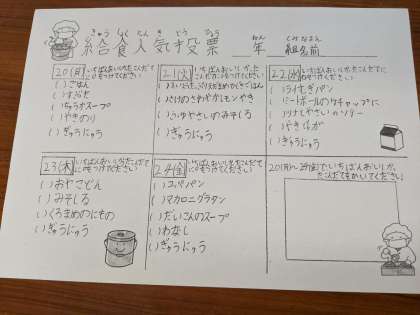 きゅう しょく にん き とう ひょう
給食人気投票 ＿年＿組名前
ねん くみ なまえ
20(月)
いちばんおいしかったこんだてに○をつけてください!
( )ごはん
( )すぶた
( )ちゅうかスープ
( )やきのり
( )ぎゅうにゅう
21(火)
いちばんおいしかったこんだてに○をつけてください!
( )さけのさわやかレモンやき
( )ふゆやさいのみそしる
( )ぎゅうにゅう
22(水)
いちばんおいしかったこんだてに○をつけてください!
( )ミートボールのケチャップに
( )ツナとやさいのソテー
( )ぎゅうにゅう
23(木)
いちばんおいしかったこんだてに○をつけてください!
( )おやこどん
( )みそしる
( )くろまめのにもの
( )ぎゅうにゅう
24(金)
いちばんおいしかったこんだてに○をつけてください!
( )コッペパン
( )マカロニグラタン
( )だいこんのスープ
( )わなし
( )ぎゅうにゅう
20(月)〜24(金)でいちばんおいしかったこんだてをかいてください!